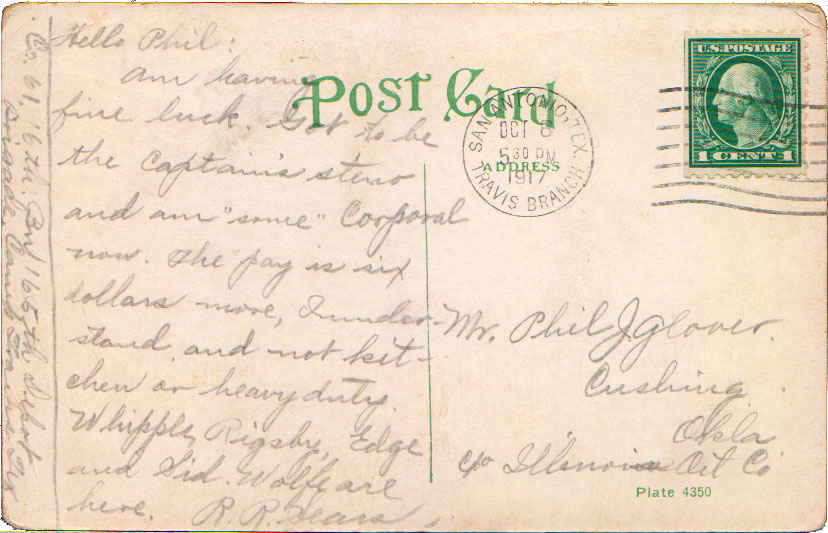 Hello Phil:
Am having
fine luck. Got to be
the Captain's steno
and am "some" Corporal
now. The pay is six
dollars more, I under-
stand and not kit-
chen or heavy duty.
Whipple, Rigsby, Edge
and Sid. Wolfe are
here. R. R. Sears
Co. 61, 16th Bn, 165th Depot
Brigade, Camp Travis, Tex
Post Card
ADDRESS
SAN ANTONIO, TEX.
OCT 6
5 30 PM
1917
TRAVIS BRANCH
U.S. POSTAGE
1 CENT 1
Mr. Phil J. Glover.
Cushing
Okla
c/o Illinois Oil Co
Plate 4350